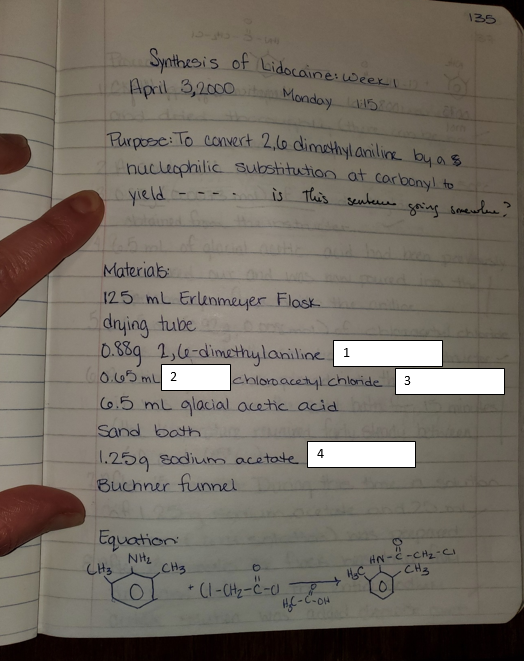 135
Synthesis of Lidocaine: Week 1
April 3, 2000 Monday 1:15
Purpose: To convert 2,6 dimethylaniline by a
nucleophilic substitution at carbonyl to
yield - - - - . is this sentence going somewhere?
Materials:
125 mL Erlenmeyer Flask
drying tube
0.88g 2,6-dimethylaniline 1
0.65 mL 2 chloroacetyl chloride 3
6.5 mL glacial acetic acid
Sand bath
1.25g sodium acetate 4
Buchner funnel
Equation:
NH₂
CH₃ CH₃
+ Cl-CH₂-C-Cl
O
H₃C-C-OH
O
HN-C-CH₂-Cl
O
H₃C CH₃